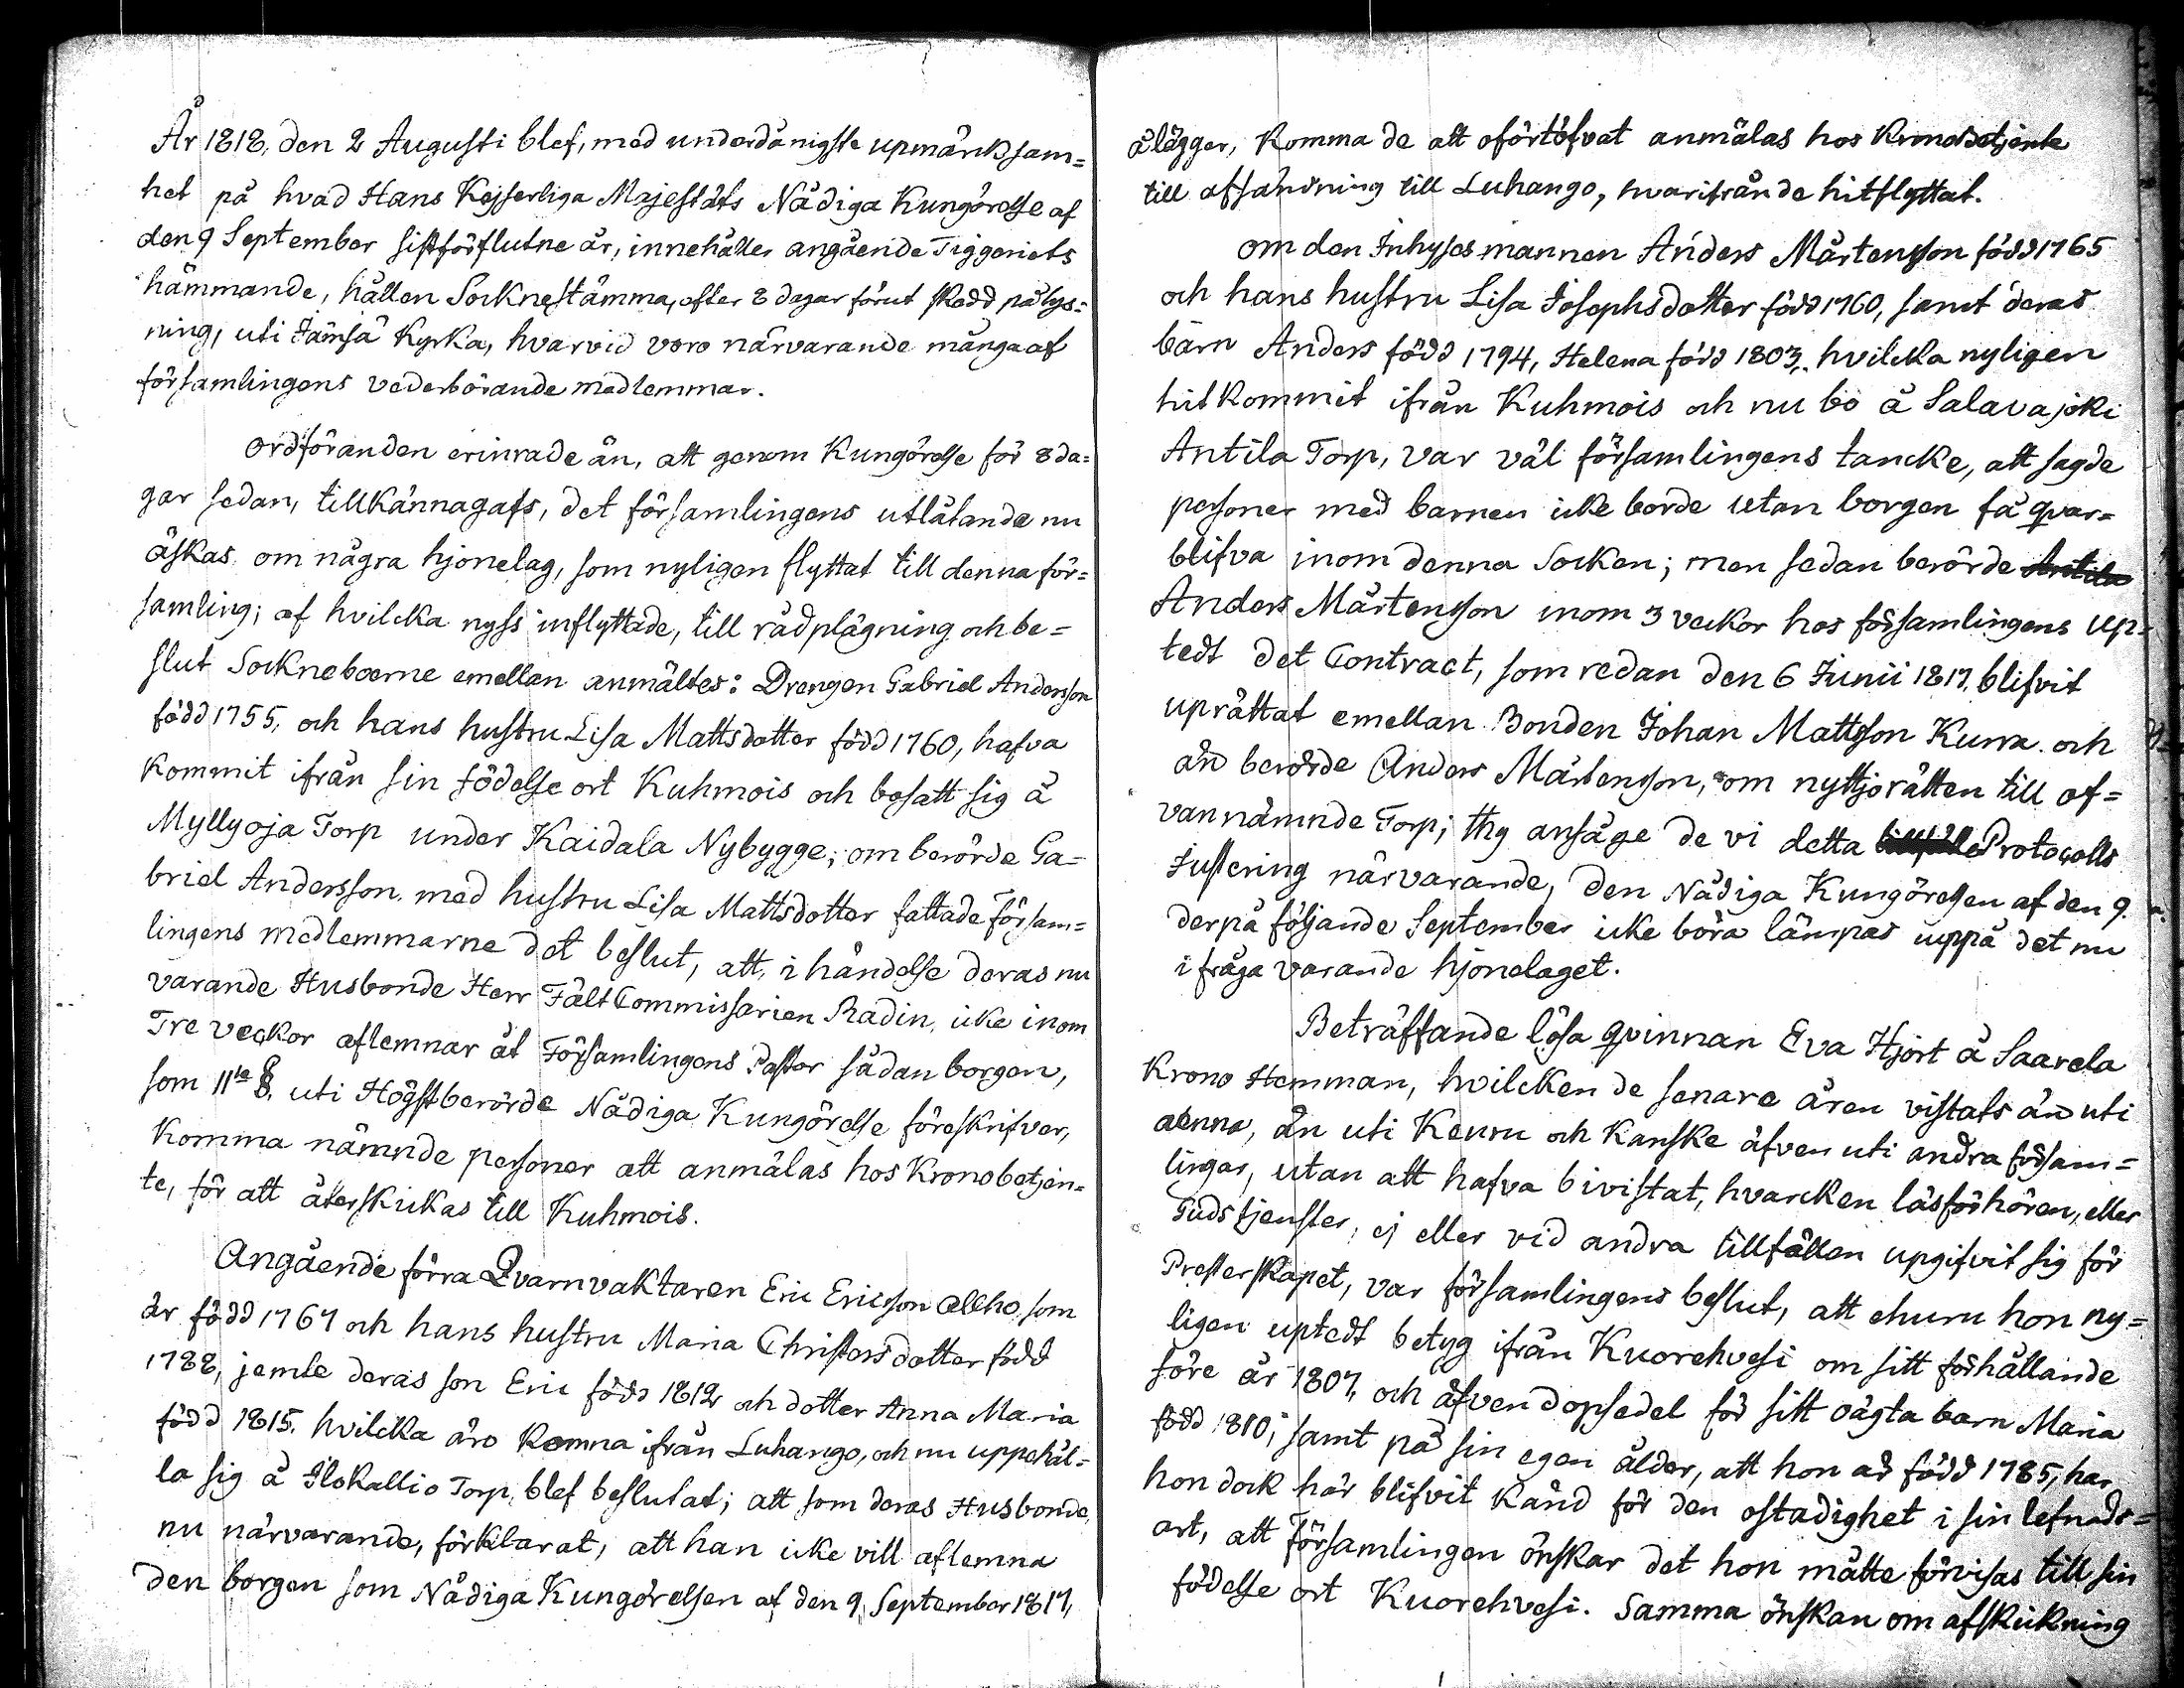 År 1818, den 2 Augusti blef, med underdånigste upmärksam=
het på hvad Hans Kejserliga Majestäts Nådiga Kungörelse af
den 9 September sistförflutne år, innehåller angående Tiggeriets
hämmande, hållen Socknestämma, efter 8 dagar förut skedd pålys=
ning, uti Jämsä Kyrka, hvarvid voro närvarande många af
församlingens vederbörande medlemmar.
Ordföranden erinrade än, att genom Kungörelse för 8 da=
gar sedan, tillkännagafs, det församlingens utlåtande nu
äskas om några hjonelag, som nyligen flyttat till denna för=
samling; af hvilcka nyss inflyttade, till rådplägning och be=
slut Sockneboerne emellan anmältes: Drengen Gabriel Anderson
född 1755, och hans hustru Lisa Mattsdotter född 1760, hafva
kommit ifrån sin födelse ort Kuhmois och bosatt sig å
Myllyoja Torp under Kaidala Nybygge; om berörde Ga=
briel Andersson med hustru Lisa Mattsdotter fattade Försam=
lingens medlemmarne det beslut, att, i händelse deras nu
varande Husbonde Herr Fält Commissarien Radin, icke inom
Tre veckor aflemnar åt Församlingens Pastor sådan borgen,
som 11te §. uti Högstberörde Nådiga Kungörelse föreskrifver,
komma nämnde personer att anmälas hos Kronobetjen=
te, för att återskickas till Kuhmois.
Angående förra Qvarnvaktaren Eric Ericsson Alho, som
är född 1767 och hans hustru Maria Christersdotter född
1788, jemte deras son Eric född 1812 och dotter Anna Maria
född 1815, hvilcka äro komna ifrån Luhango, och nu uppehål=
la sig å Ilokallio Torp, blef beslutat; att som deras Husbonde,
nu närvarande, förklarat, att han icke vill aflemna
den borgen som Nådiga Kungörelsen af den 9 September 1817,
ålägger, komma de att oförtöfvat anmälas hos Kronobetjente
till afsändning till Luhango, hvarifrån de hitflyttat.
Om den Inhyses mannen Anders Mårtensson född 1765
och hans hustru Lisa Josephsdotter född 1760, samt deras
barn Anders född 1794, Helena född 1803, hvilcka nyligen
hitkommit ifrån Kuhmois och nu bo å Salavajoki
Antila Torp, var väl församlingens tancke, att sagde
personer med barnen icke borde utan borgen få qvar=
blifva inom denna Socken; men sedan berörde Antila
Anders Mårtensson inom 3 veckor hos församlingens up=
tedt det Contract, som redan den 6 Junii 1817, blifvit
uprättat emellan Bonden Johan Mattsson Kurra och
än berörde Anders Mårtensson, om nyttjorätten till of=
vannämnde Torp; thy ansåge de vi detta Protocolls
Justering närvarande, den Nådiga Kungörelsen af den 9
derpå följande September icke böra lämpas uppå det nu
i fråga varande hjonelaget.
Beträffande lösa qvinnan Eva Hjort å Saarela
Krono Hemman, hvilcken de senare åren vistats än uti
denna, än uti Keuru och kanske äfven uti andra försam=
lingar, utan att hafva bivistat, hvarcken läsförhören, eller
Gudstjenster, ej eller vid andra tillfällen upgifvit sig för
Presterskapet, var församlingens beslut, att ehuru hon ny=
ligen uptedt betyg ifrån Kuorehvesi om sitt förhållande
före år 1807, och äfven dopsedel för sitt oägta barn Maria
född 1810; samt på sin egen ålder, att hon är född 1785, har
hon dock här blifvit känd för den ostadighet i sin lefnads=
art, att Församlingen önskar det hon måtte förvisas till sin
födelse ort Kuorehvesi. Samma önskan om afskickning